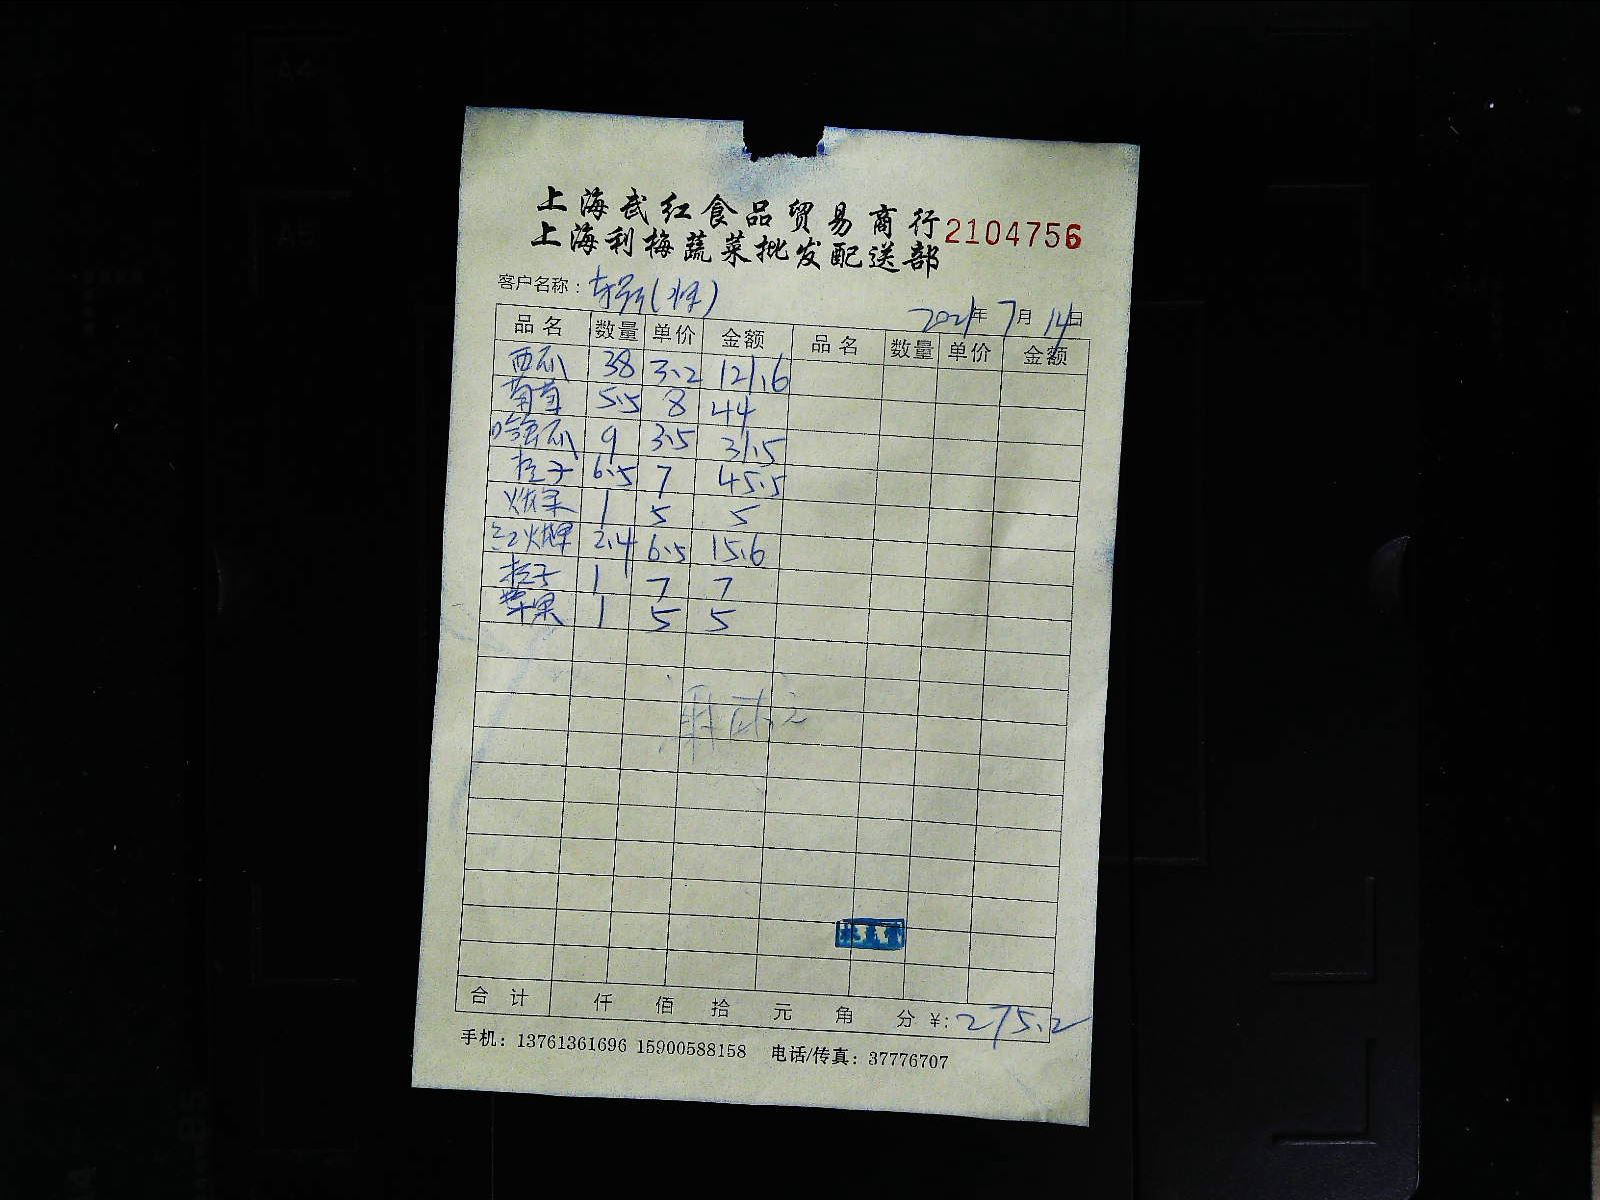 上海武红食品贸易商行
上海利梅蔬菜批发配送部
2104756
客户名称：
2021年7月14日
品名 数量 单价 金额 品名 数量 单价 金额
西瓜 38 3.2 121.6
葡萄 5.5 8 44
哈蜜瓜 9 3.5 31.5
桔子 6.5 7 45.5
1 5 5
2.4 6.5 15.6
桔子 1 7 7
苹果 1 5 5
合计 仟 佰 拾 元 角 分 ¥: 275.2
手机：13761361696 15900588158 电话/传真：37776707
A4
A5